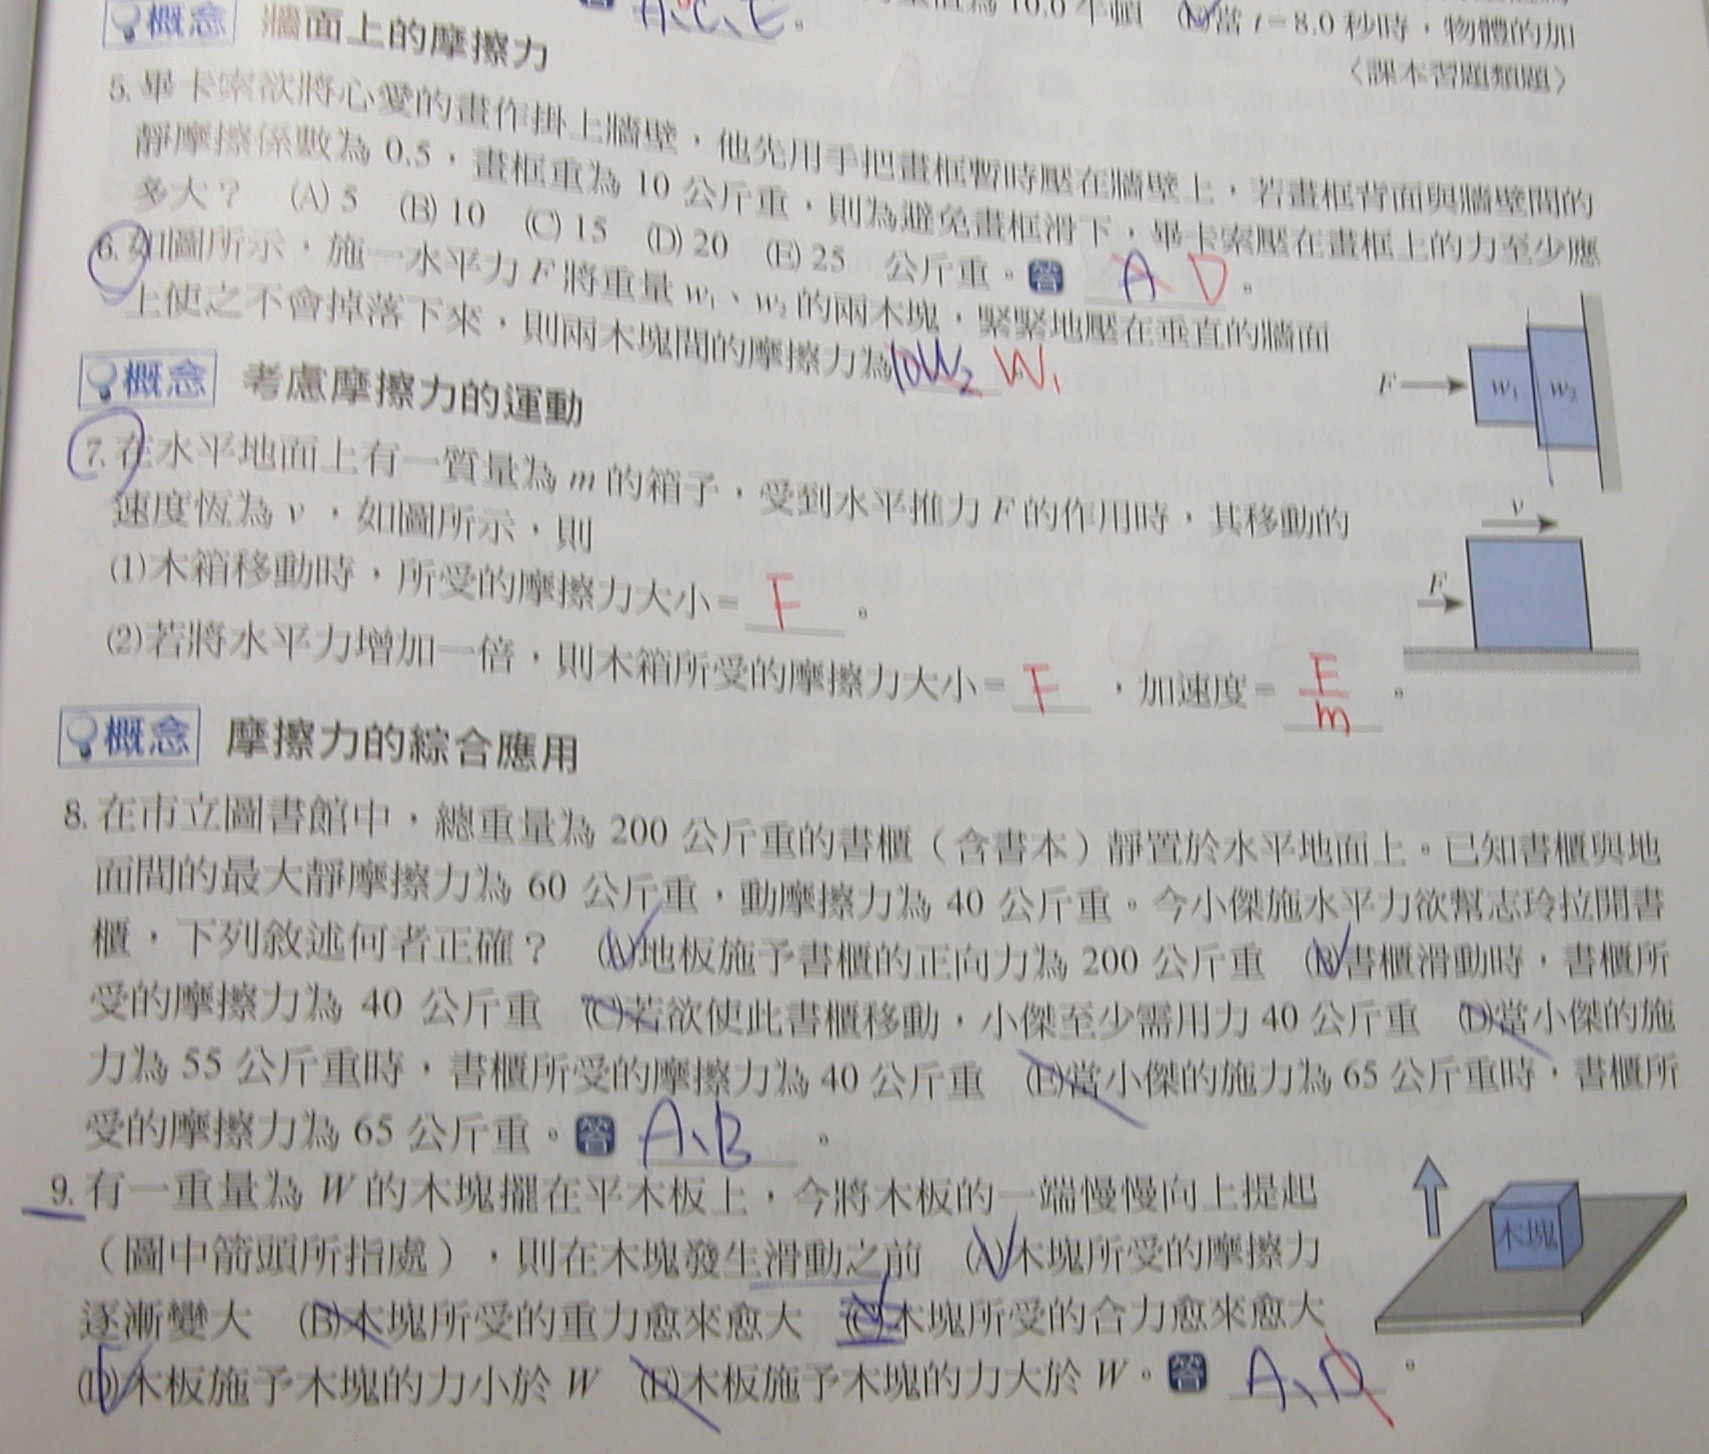 A、C、E。
10.0 牛頓 (E)當 t=8.0 秒時，物體的加
〈課本習題類題〉
概念 牆面上的摩擦力
5. 畢卡索欲將心愛的畫作掛上牆壁，他先用手把畫框暫時壓在牆壁上，若畫框背面與牆壁間的
靜摩擦係數為 0.5，畫框重為 10 公斤重，則為避免畫框滑下，畢卡索壓在畫框上的力至少應
多大？ (A) 5 (B) 10 (C) 15 (D) 20 (E) 25 公斤重。答 A D。
6. 如圖所示，施一水平力 F 將重量 w₁、w₂ 的兩木塊，緊緊地壓在垂直的牆面
上使之不會掉落下來，則兩木塊間的摩擦力為 W₂ W₁
F w₁ w₂
概念 考慮摩擦力的運動
7. 在水平地面上有一質量為 m 的箱子，受到水平推力 F 的作用時，其移動的
速度恆為 v，如圖所示，則
v
F
(1)木箱移動時，所受的摩擦力大小= F。
(2)若將水平力增加一倍，則木箱所受的摩擦力大小= F，加速度= F/m。
概念 摩擦力的綜合應用
8. 在市立圖書館中，總重量為 200 公斤重的書櫃（含書本）靜置於水平地面上。已知書櫃與地
面間的最大靜摩擦力為 60 公斤重，動摩擦力為 40 公斤重。今小傑施水平力欲幫志玲拉開書
櫃，下列敘述何者正確？ (A)地板施予書櫃的正向力為 200 公斤重 (B)書櫃滑動時，書櫃所
受的摩擦力為 40 公斤重 (C)若欲使此書櫃移動，小傑至少需用力 40 公斤重 (D)當小傑的施
力為 55 公斤重時，書櫃所受的摩擦力為 40 公斤重 (E)當小傑的施力為 65 公斤重時，書櫃所
受的摩擦力為 65 公斤重。答 A、B。
9. 有一重量為 W 的木塊擺在平木板上，今將木板的一端慢慢向上提起
（圖中箭頭所指處），則在木塊發生滑動之前 (A)木塊所受的摩擦力
逐漸變大 (B)木塊所受的重力愈來愈大 (C)木塊所受的合力愈來愈大
(D)木板施予木塊的力小於 W (E)木板施予木塊的力大於 W。答 A、D。
木塊